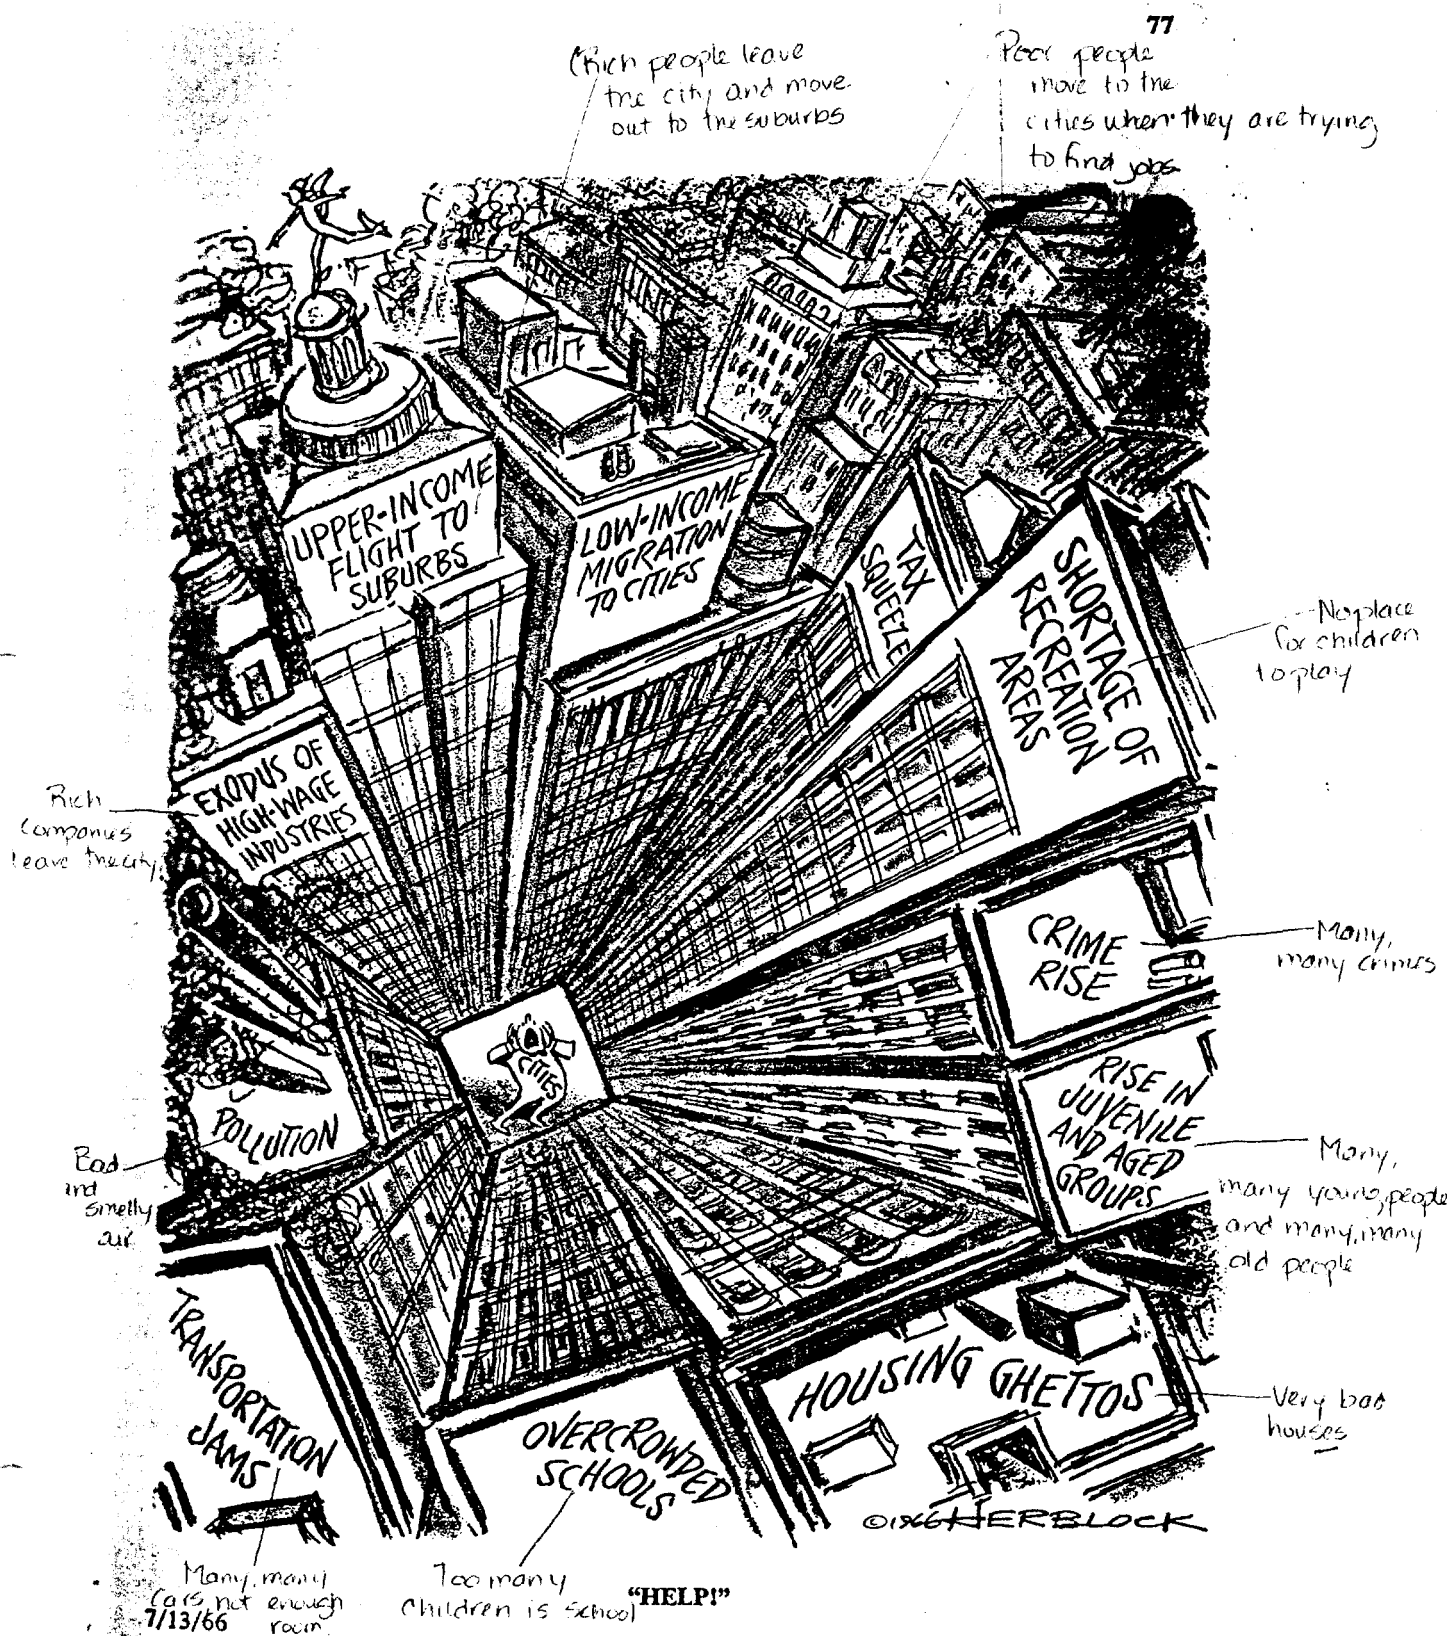 77
Rich people leave
the city and move
out to the suburbs
Poor people
move to the
cities when they are trying
to find jobs
UPPER-INCOME
FLIGHT TO
SUBURBS
LOW-INCOME
MIGRATION
TO CITIES
TAX
SQUEEZE
SHORTAGE OF
RECREATION
AREAS
No place
for children
to play
EXODUS OF
HIGH-WAGE
INDUSTRIES
Rich
companies
leave the city
CRIME
RISE
Many,
many crimes
CITIES
RISE IN
JUVENILE
AND AGED
GROUPS
Many,
many young people
and many, many
old people
POLLUTION
Bad
and
smelly
air
TRANSPORTATION
JAMS
OVERCROWDED
SCHOOLS
HOUSING GHETTOS
Very bad
houses
©1966 HERBLOCK
Many, many
cars not enough
room
Too many
children is school
"HELP!"
7/13/66